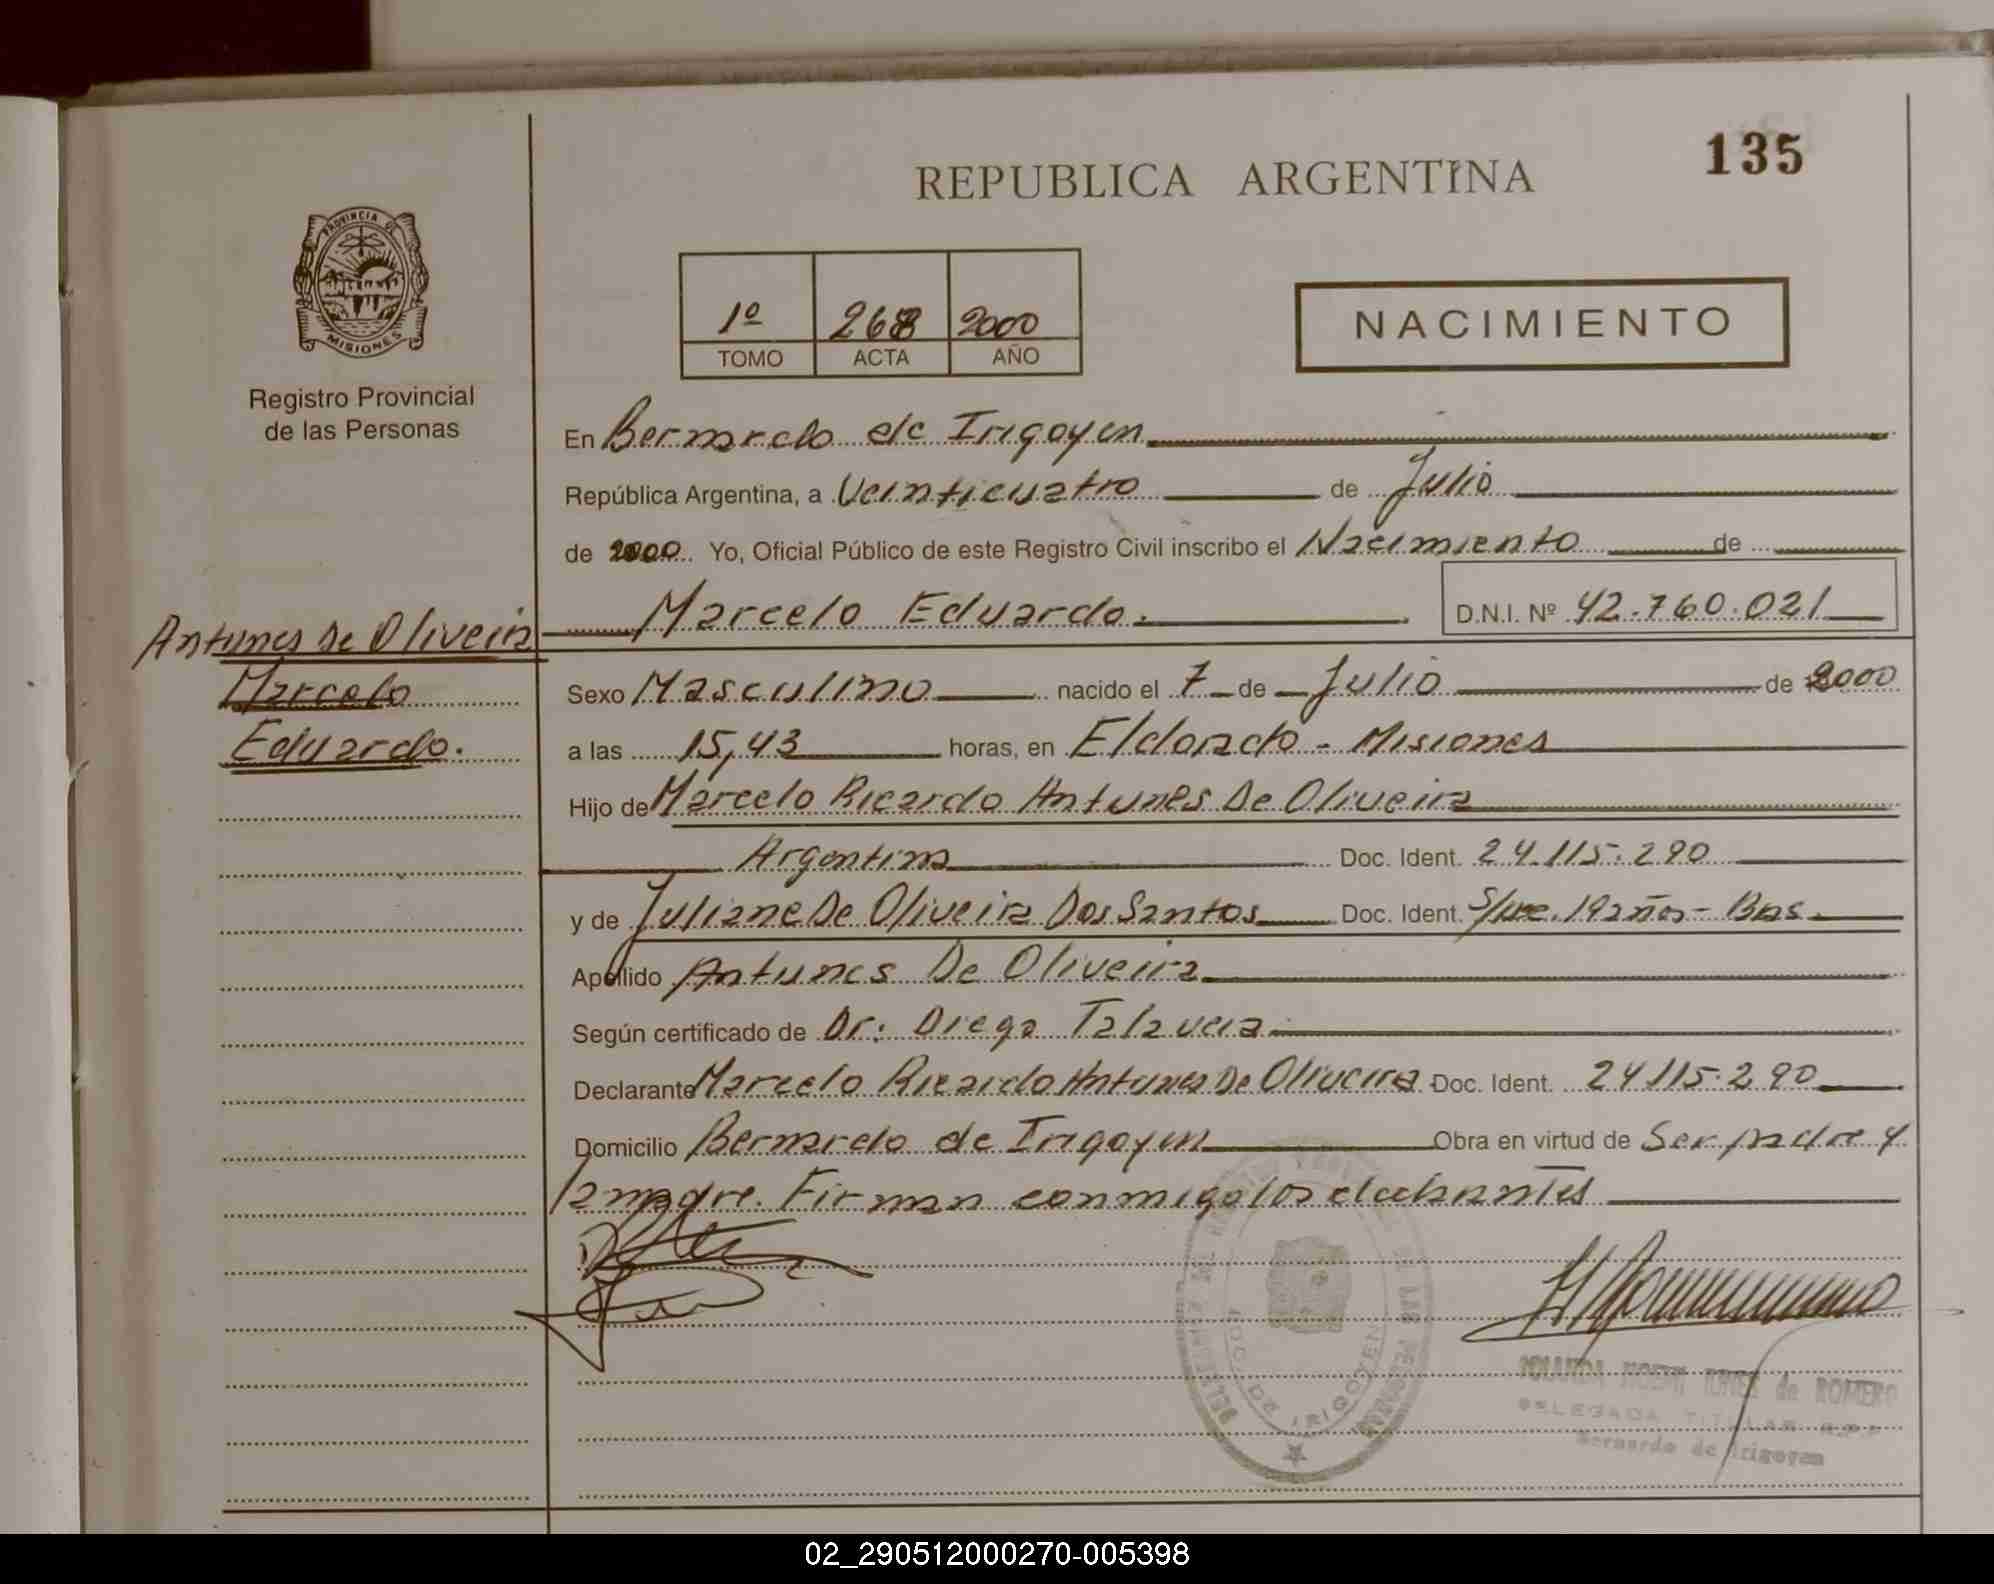 135
REPUBLICA ARGENTINA
PROVINCIA DE
MISIONES
Registro Provincial
de las Personas
1º 268 2000
TOMO ACTA AÑO
NACIMIENTO
En Bernardo de Irigoyen
República Argentina, a Veinticuatro de Julio
de 2000 Yo, Oficial Público de este Registro Civil inscribo el Nacimiento de
Marcelo Eduardo. D.N.I. Nº 42.760.021
Antunes De Oliveira
Marcelo
Eduardo.
Sexo Masculino nacido el 7 de Julio de 2000
a las 15,43 horas, en Eldorado - Misiones
Hijo de Marcelo Ricardo Antunes De Oliveira
Argentina Doc. Ident. 24.115.290
y de Juliane De Oliveira Dos Santos Doc. Ident. 19 años - Bras.
Apellido Antunes De Oliveira
Según certificado de Dr: Diego Talavera
Declarante Marcelo Ricardo Antunes De Oliveira Doc. Ident. 24.115.290
Domicilio Bernardo de Irigoyen Obra en virtud de Ser padre y
la madre. Firman conmigo los
de ROMERO
DELEGADA TITULAR R.P.P
Bernardo de Irigoyen
02_290512000270-005398